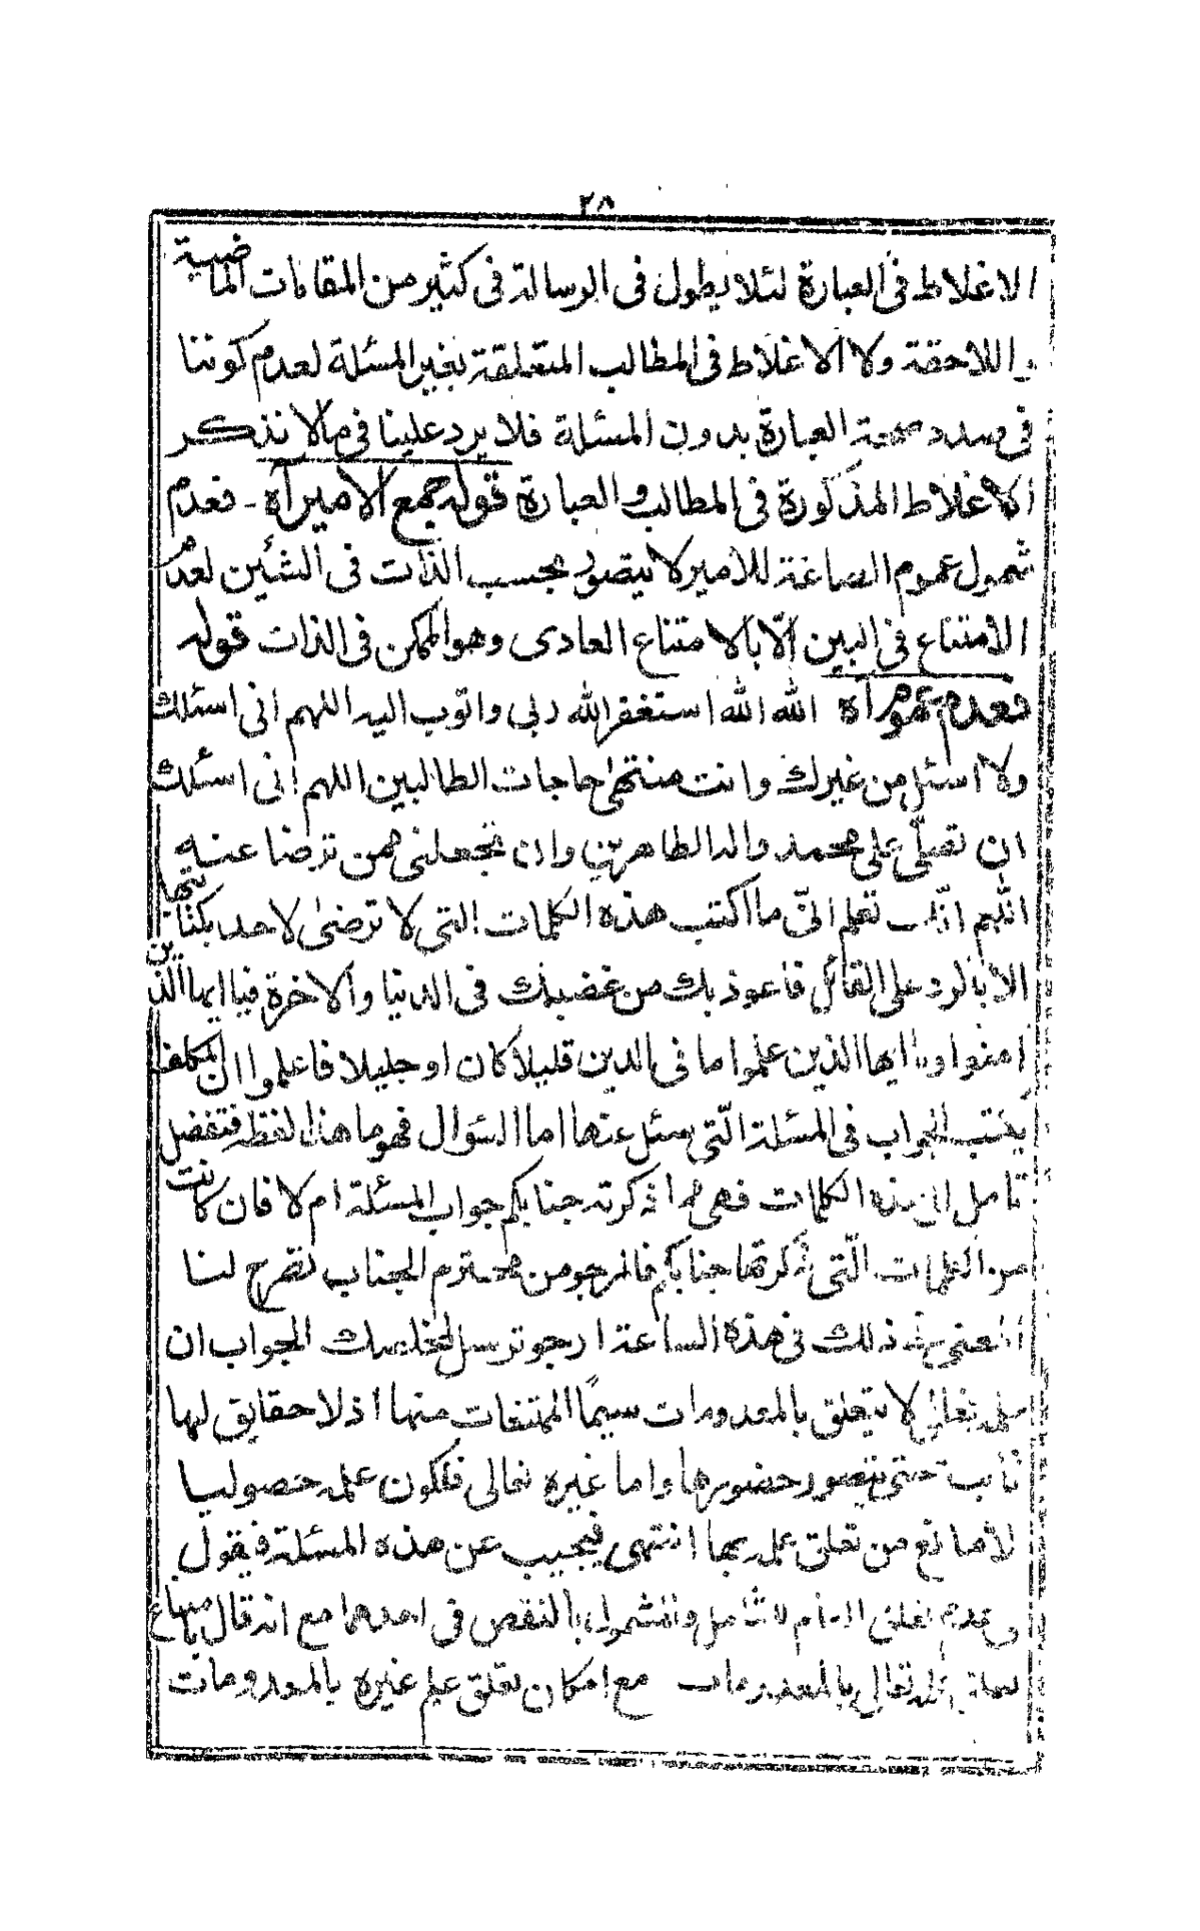 ٢٨
الاغلاط فى العبارة لئلا يطول فى الرسالة فى كثير من المقامات الماضية
و اللاحقة ولا الاغلاط فى المطالب المتعلقة بغير المسئلة لعدم كوننا
فى صدد صحة العبارة بدون المسئلة فلا يرد علينا فى مالا نذكر
الاغلاط المذكورة فى المطالب و العبارة قوله جمع الامير آه - فعدم
شمول عموم الصاغة للامير لا يتصور بحسب الذات فى الشئين لعدم
الامتناع فى البين الّا بالامتناع العادى وهو الممكن فى الذات قوله
فعدم عموم آه الله الله استغفر الله ربى واتوب اليه اللهم انى اسئلك
ولا اسئل من غيرك وانت منتهى حاجات الطالبين اللهم انى اسئلك
ان تصلّى على محمد واله الطاهرين وان تجعلنى ممن ترضا عنه
اللهم انك تعلم انّى ما اكتب هذه الكلمات التى لا ترضى لاحد بكتابتها
الا بالرد على القائل فاعوذ بك من غضبك فى الدنيا والاخرة فيا ايها الذين
امنوا ويا ايها الذين علموا ما فى الدين قليلا كان او جليلا فاعلموا ان المكلف
يكتب الجواب فى المسئلة الّتى سئل عنها اما السؤال فهو ما هذا لفظه فتفضل
تامل الى هذه الكلمات فهى مما ذكرته جنابكم جواب المسئلة ام لا فان كانت
من الكلمات الّتى ذكرتها جنابكم فالمرجو من محترم الجناب تشرح لنا
المعنى ذلك فى هذه الساعة ارجو ترسل لمخلصك الجواب ان
علمه تعالى لا يتعلق بالمعدومات سيمّا الممتنعات منها اذ لا حقايق لها
حتى يتصور حضورها واما غيره تعالى فلكون علمه حصوليا
لا مانع من تعلق علمه بها انتهى فيجيب عن هذه المسئلة فيقول
وعدم تعلق بالنقص فى احدهما مع انه قال بامتناع
علمه تعالى بالمعدومات مع امكان تعلق علم غيره بالمعدومات